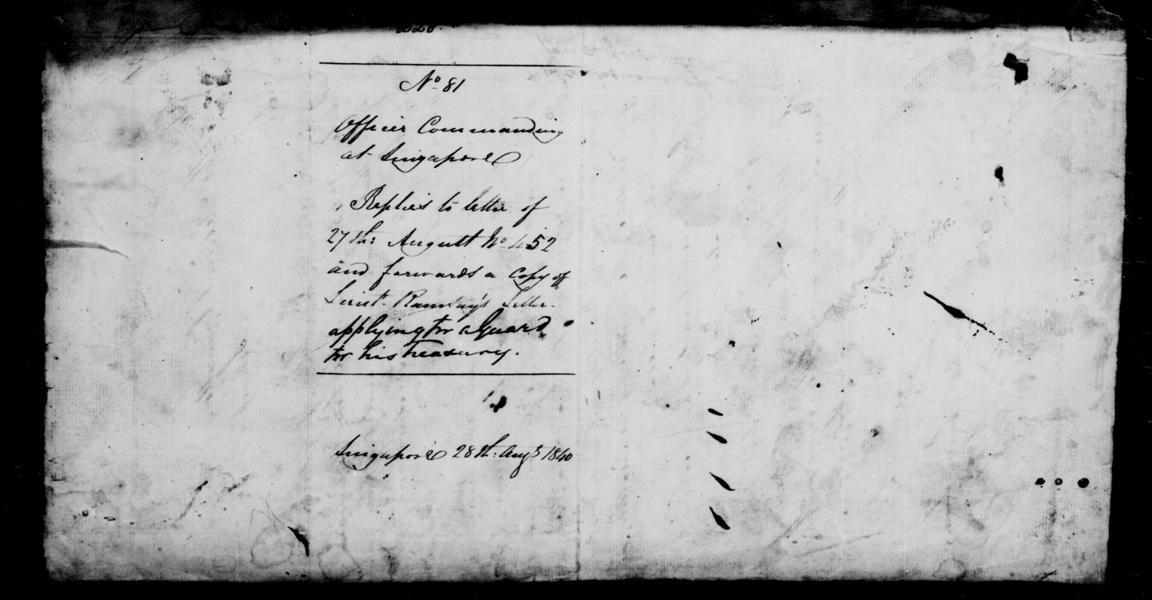 No 81
Officer Commanding
at Singapore
Replies to letter of
27th August No 452
and forwards a Copy of
Lieut. Ramsay's Letter
applying for a Guard
for his treasury.
Singapore 28th Augt 1840